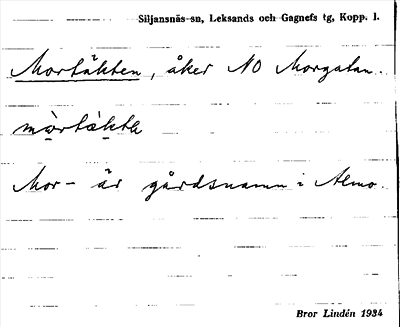 Siljansnäs sn, Leksands och Gagnefs tg, Kopp. l.
Mortäkten, åker NO Morgatan.
mòrtàkta
Mor- är gårdsnamn i Almo.
Bror Lindén 1934